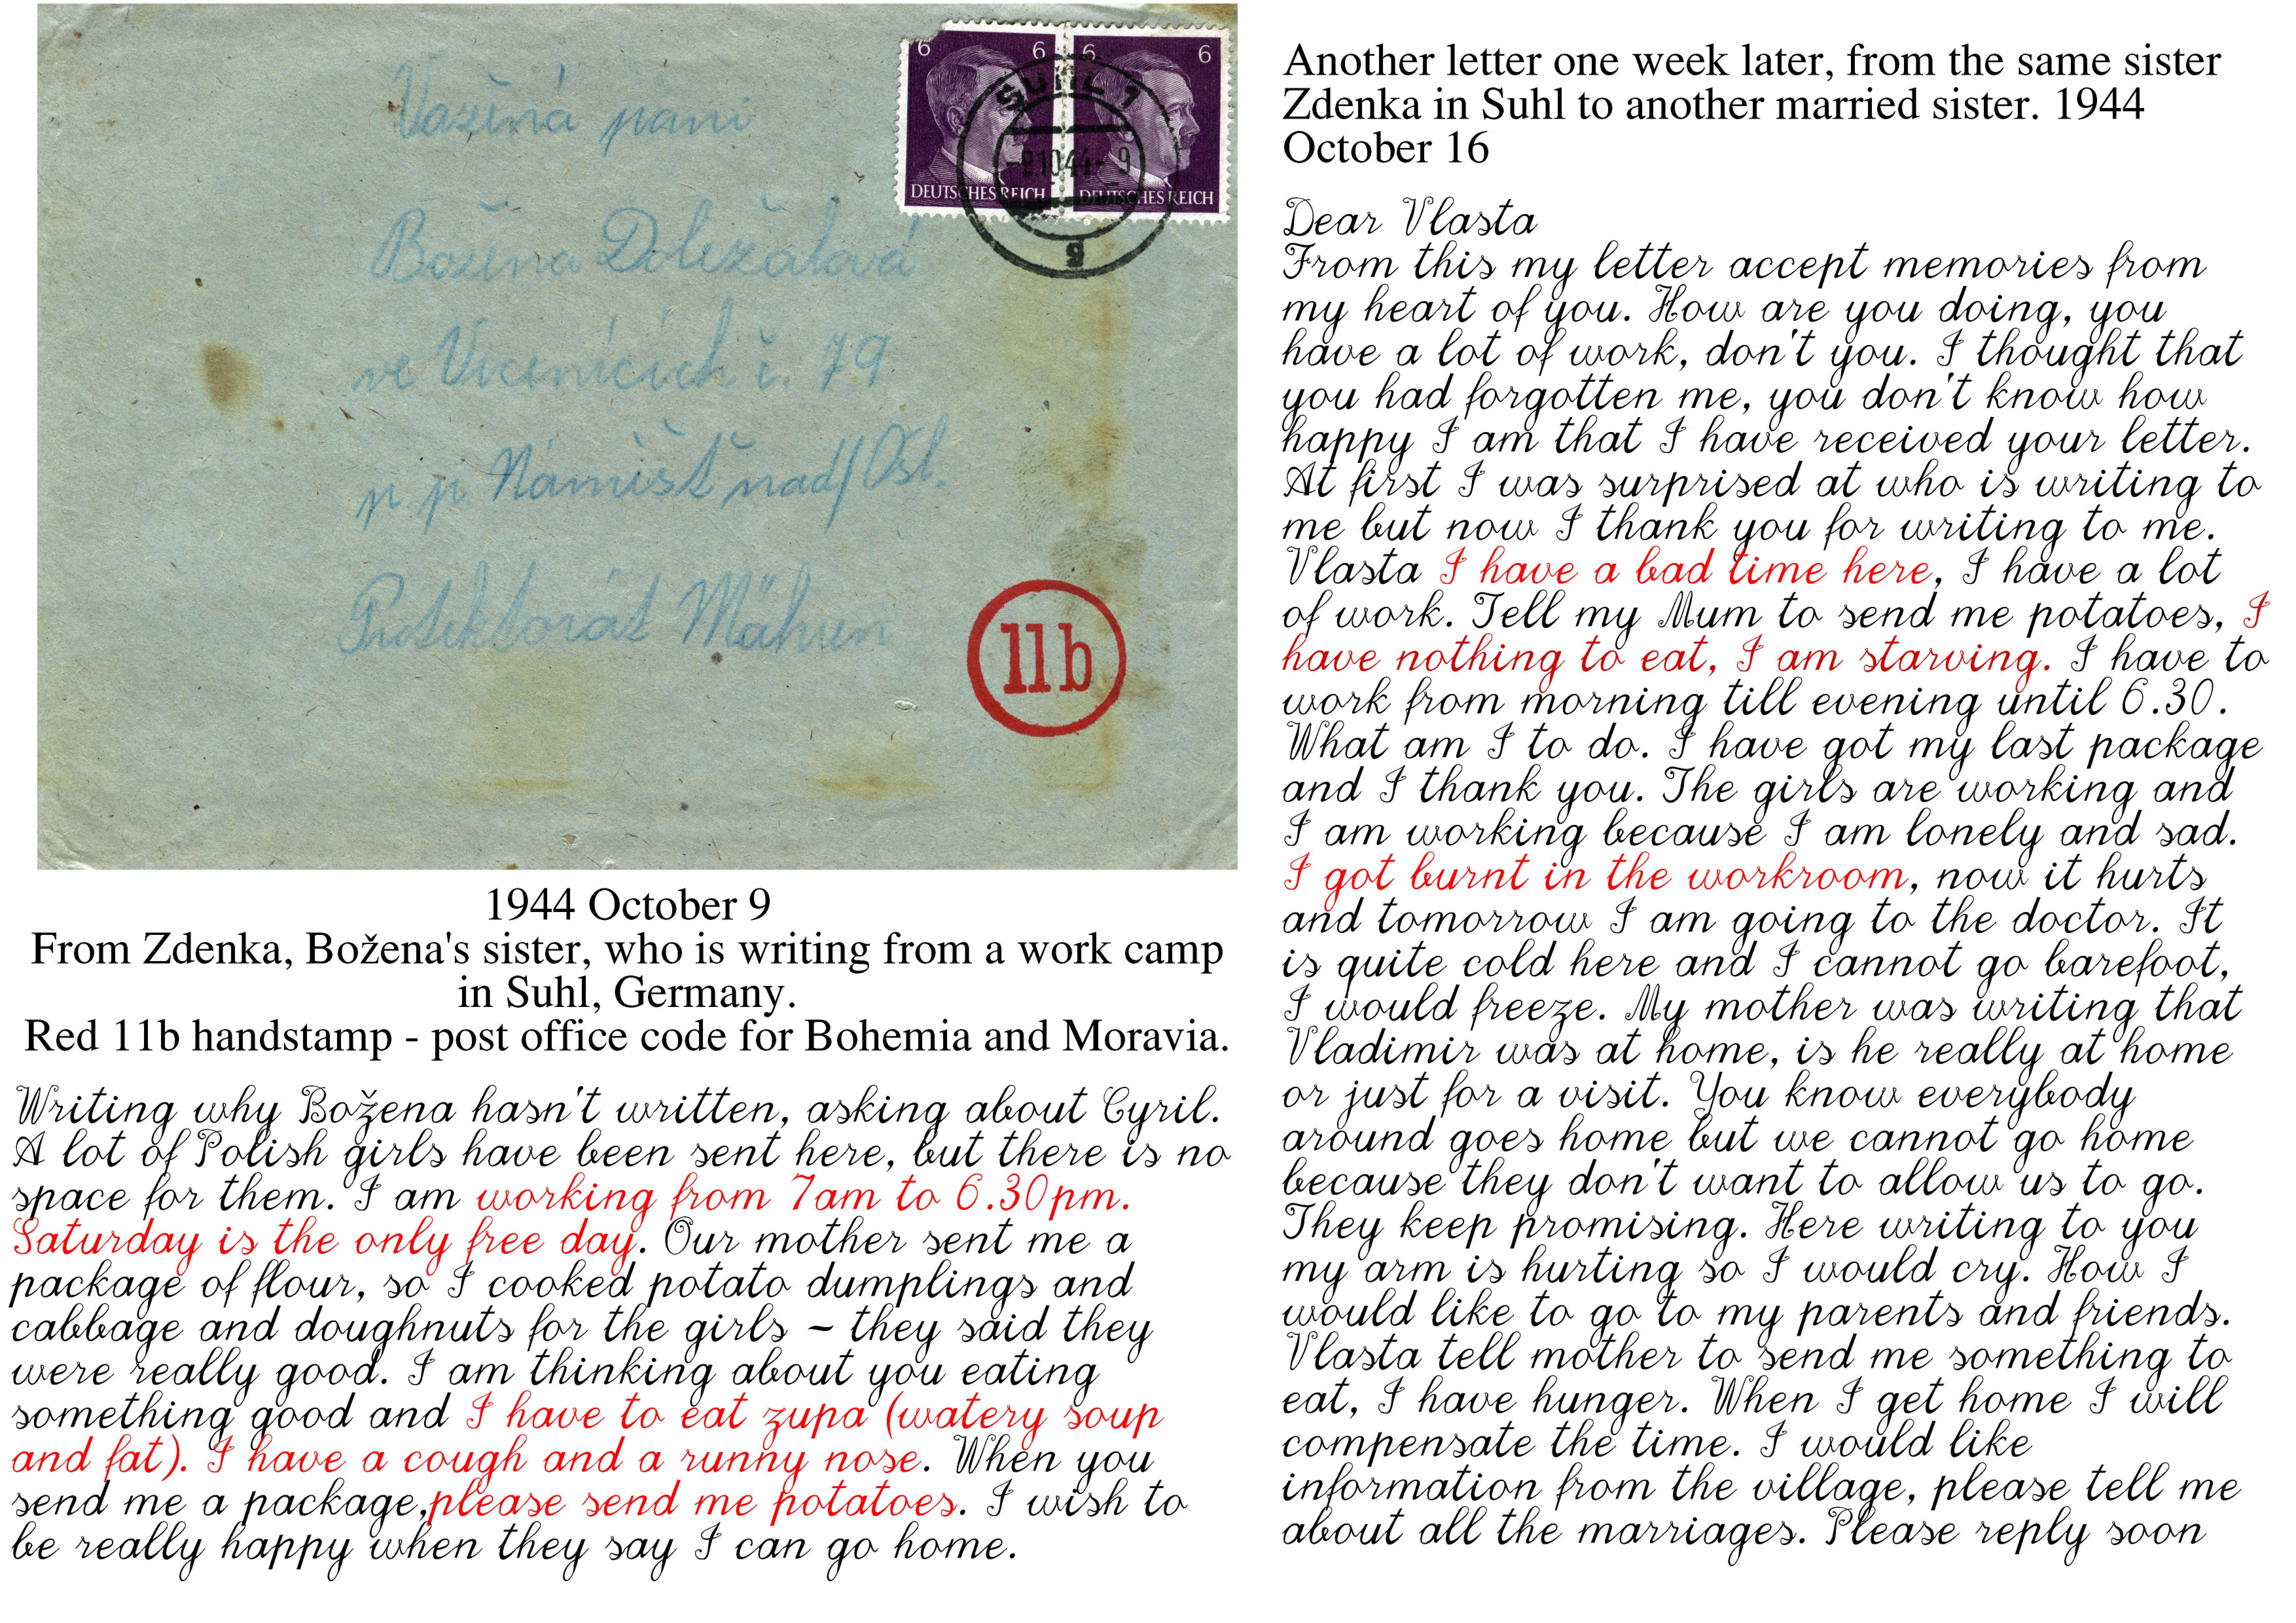 Vážená paní
Božena Doležalová
ve Vícenicích č. 79
p. p. Náměšť nad/Osl.
Protektorát Mähren
6 6 6 6
SUHL 1
-9.10.44- 9
g
DEUTSCHES REICH DEUTSCHES REICH
11b
1944 October 9
From Zdenka, Božena's sister, who is writing from a work camp
in Suhl, Germany.
Red 11b handstamp - post office code for Bohemia and Moravia.
Writing why Božena hasn't written, asking about Cyril.
A lot of Polish girls have been sent here, but there is no
space for them. I am working from 7am to 6.30pm.
Saturday is the only free day. Our mother sent me a
package of flour, so I cooked potato dumplings and
cabbage and doughnuts for the girls – they said they
were really good. I am thinking about you eating
something good and I have to eat zupa (watery soup
and fat). I have a cough and a runny nose. When you
send me a package,please send me potatoes. I wish to
be really happy when they say I can go home.
Another letter one week later, from the same sister
Zdenka in Suhl to another married sister. 1944
October 16
Dear Vlasta
From this my letter accept memories from
my heart of you. How are you doing, you
have a lot of work, don't you. I thought that
you had forgotten me, you don't know how
happy I am that I have received your letter.
At first I was surprised at who is writing to
me but now I thank you for writing to me.
Vlasta I have a bad time here, I have a lot
of work. Tell my Mum to send me potatoes, I
have nothing to eat, I am starving. I have to
work from morning till evening until 6.30.
What am I to do. I have got my last package
and I thank you. The girls are working and
I am working because I am lonely and sad.
I got burnt in the workroom, now it hurts
and tomorrow I am going to the doctor. It
is quite cold here and I cannot go barefoot,
I would freeze. My mother was writing that
Vladimir was at home, is he really at home
or just for a visit. You know everybody
around goes home but we cannot go home
because they don't want to allow us to go.
They keep promising. Here writing to you
my arm is hurting so I would cry. How I
would like to go to my parents and friends.
Vlasta tell mother to send me something to
eat, I have hunger. When I get home I will
compensate the time. I would like
information from the village, please tell me
about all the marriages. Please reply soon